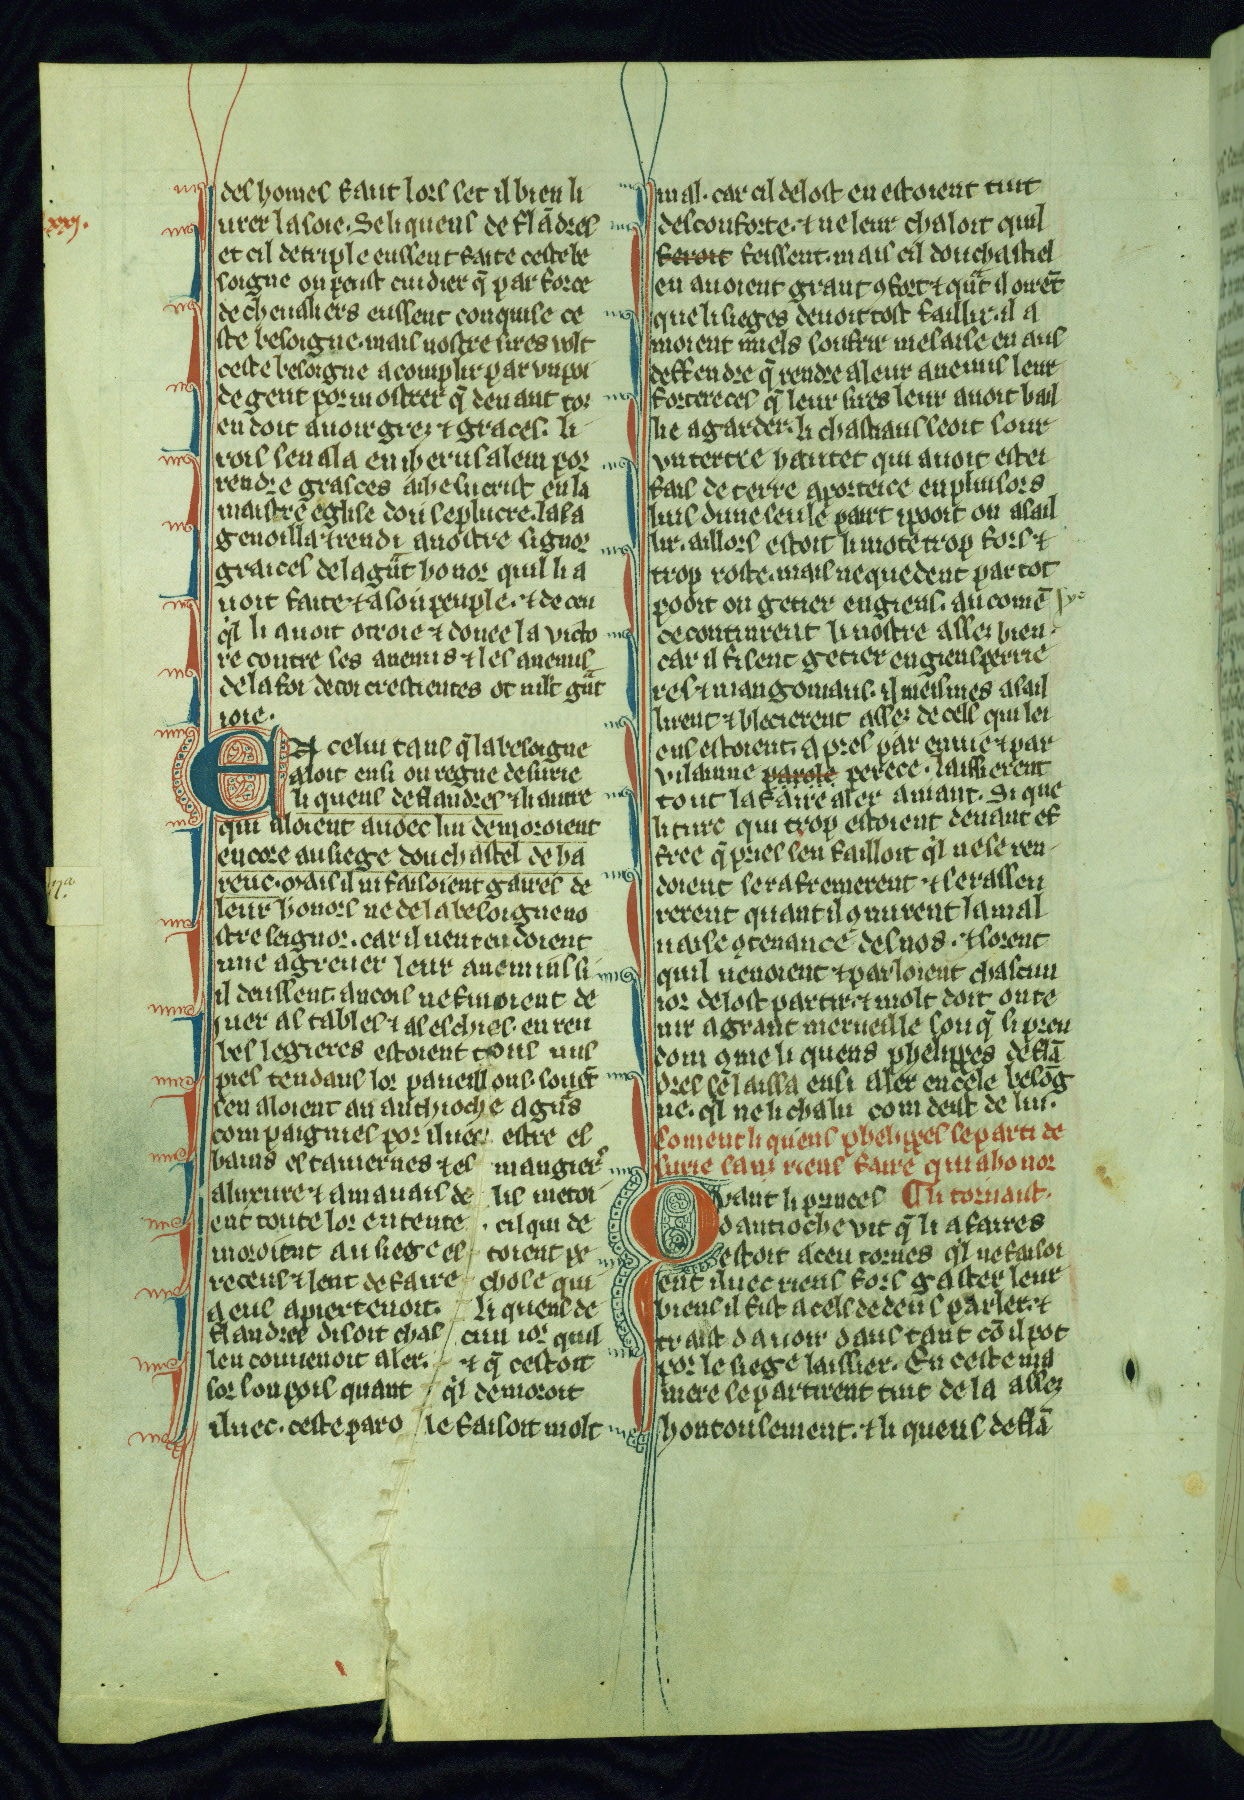 xxj.
des homes faut lors set il bien li
urer la soie. Se li quens de flādres
et cil de triple eussent faite ceste be
soigne on peust cuidier q̄ par force
de cheualiers eussent conquise ce
ste besoigne. mais nostre sires volt
ceste besoigne acomplir par vn poi
de gent por mostrer q̄ deuant tor
en doit auoir grez ⁊ graces. li
rois sen ala en iherusalem por
rendre grasces a ihesucrist en la
maistre eglise dou sepulcre. la sa
genoilla ⁊ rendi a nostre signor
graices de la gͣnt honor quil li a
uoit faite ⁊ a son peuple. ⁊ de ceu
qͥl li auoit otroie ⁊ donee la victo
re contre ses anemis ⁊ les anemis
de la foi de toi crestientes ot mlt gͣnt
ioie.
EN celui tans q̄ la besoigne
aloit ensi ou regne de surie
li quens de flandres ⁊ li autre
qui aloient auoec lui demoroient
encore au siege dou chastel de ha
renc. Mais il ni faisoient gaires de
leur honors ne de la besoigne no
stre seignor. car il nentendoient
mie a greuer leur anemis si
il deussent. ancois ne finoient de
iuer as tables ⁊ as eschies. en reu
bes legieres estoient tous nus
pies tendaus lor paueillons. souēt
sen aloient an anthioche a gͣns
compaignies por iluec estre es
bains es tauernes ⁊ es mangiers
a luxure ⁊ a mauais de lis metoi
ent toute lor entente. cil qui de
moroient au siege es toient pe
receus ⁊ lent de faire chose qui
a eus apiertenoit. li quens de
flandres disoit chas cun ior quil
len couuenoit aler. ⁊ q̄ cestoit
sor son pois quant qͥl demoroit
iluec. ceste paro le faisoit molt
mal. car cil de lost en estoient tuit
desconforte. ⁊ ne leur chaloit quil
feroit feissent. mais cil dou chastiel
en auoient grant ꝯfort ⁊ qͣnt il oirēt
que li sieges deuoit tost faillir. il a
moient miels soufrir mesaise en aus
deffendre q̄ rendre a leur anemis leur
fortereces q̄ leur sires leur auoit bail
lie a garder. li chastiaus seoit sour
vn tertre hautet qui auoit estei
fais de terre aporteice en pluisors
lius dune seule part ipooit on asail
lir. aillors estoit li mote trop fors ⁊
trop roste. mais nequedent par tot
pooit on getier engiens. au comē
cecontinrent li nostre assez bien.
car il fisent getier engiens perrie
res ⁊ mangoniaus. il meismes asail
lirent ⁊ blecierent assez de cels qui lei
ens estoient. apres par enuie ⁊ par
vilainne parole perece. laissierent
tout la faire aler auant. Si que
li turc qui trop estoient deuant ef
free q̄ pries sen failloit qͥl ne se ren
doient se rafremerent ⁊ se rasseu
rerent quant il ꝯnurent la mal
uaise ꝯtenance des nos. ⁊ lorent
quil uenoient ⁊ parloient chascun
ior de lost partir. ⁊ molt doit on te
nir a grant merueille son q̄ si preu
dom ꝯme li quens phelippes de flā
dres sē laissa ensi aler en cele besōg
ne. qͥl ne li chalu com dent de lui.
Coment li quens phelippes se parti de
surie sans riens faire qui a honor
li tornant.
Quant li princes
dantioche vit q̄ li afaires
estoit a ceu tornes qͥl ne faisoi
ent iluec riens fors gaster leur
biens il fist a cels dedens parler. ⁊
traist dauoir daus tant cō il pot
por le siege laissier. En ceste ma
niere se partirent tuit de la assez
hontousement. ⁊ li quens de flā